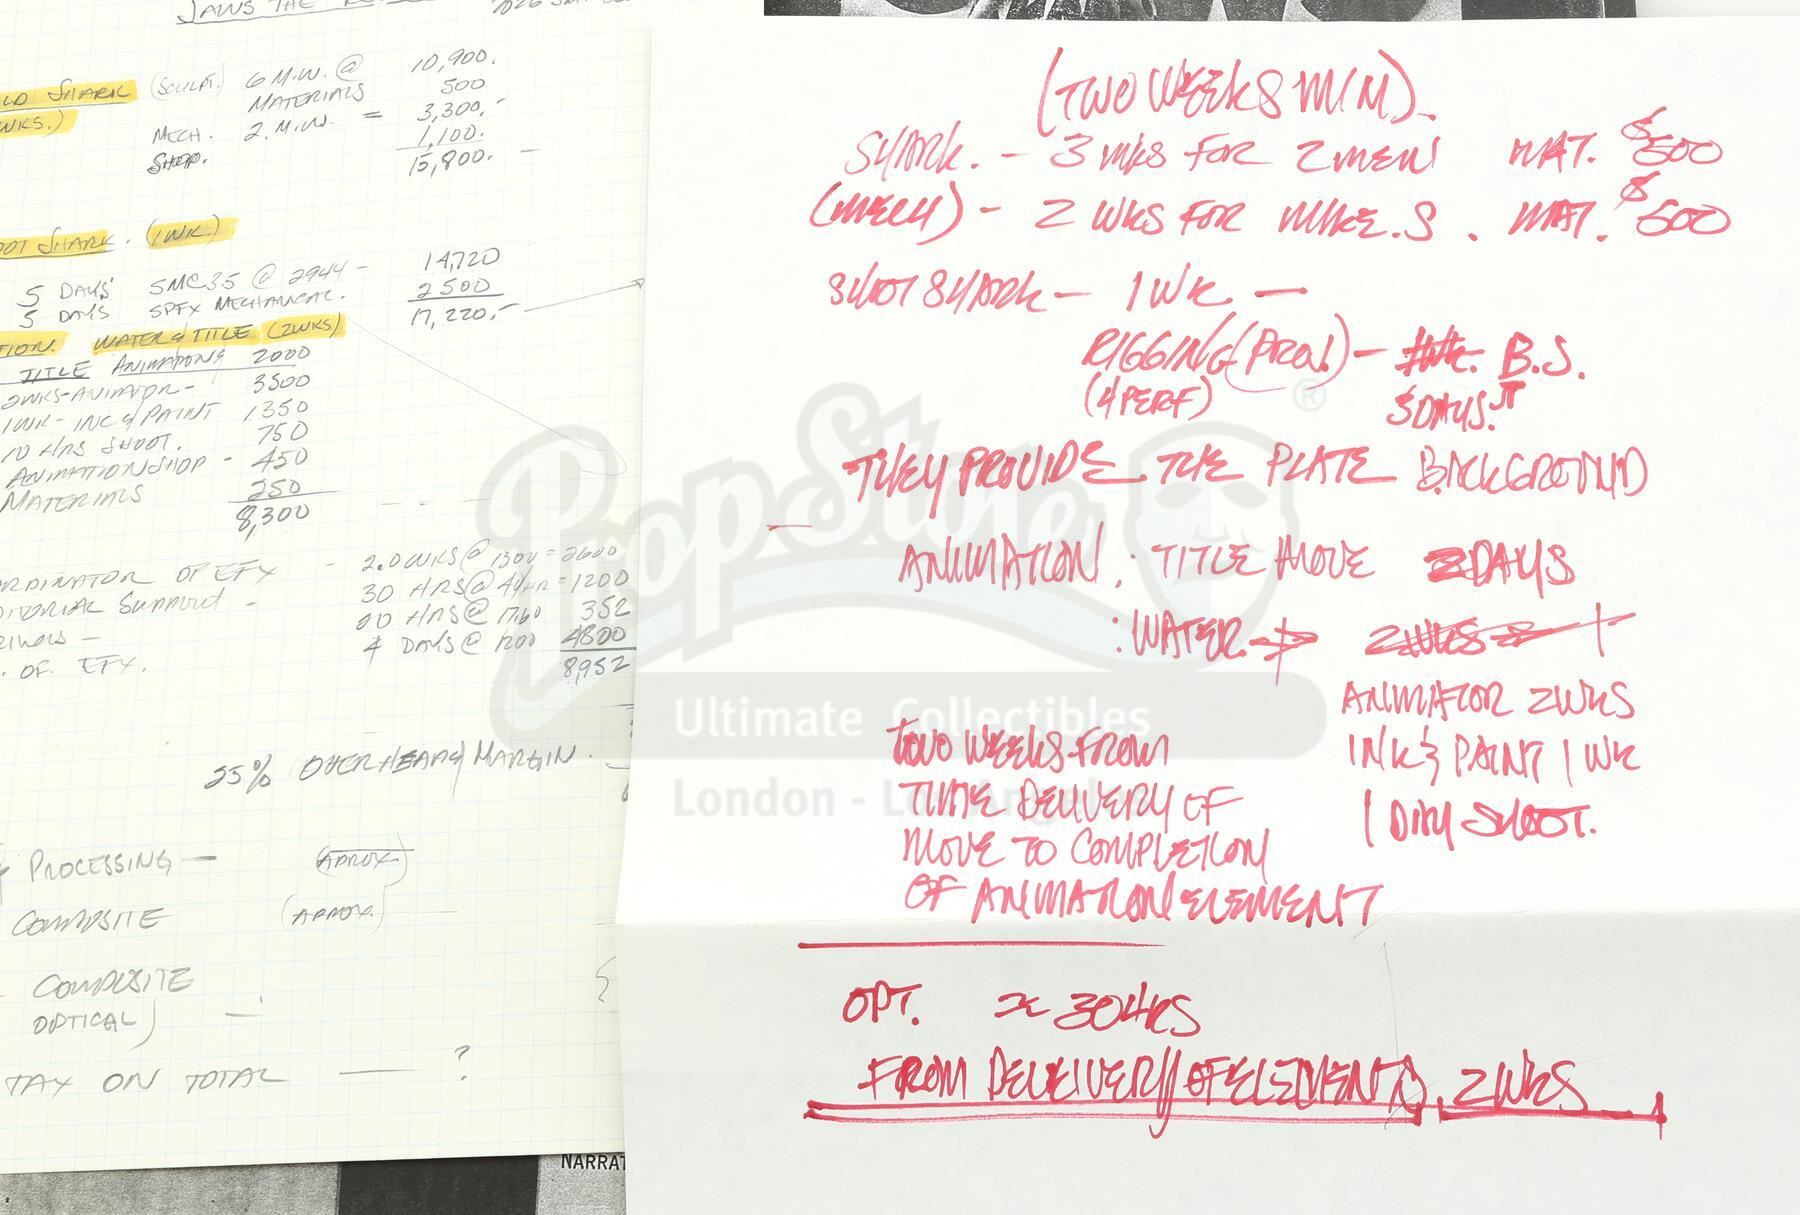 JAWS THE
LD SHARK (SCULPT.) 6 M.W. @ 10,900.
WKS.) MATERIALS 500
MECH. 2. M.W. = 3,300.-
SHOP. 1,100.
15,800. -
OOT SHARK. (1WK.)
5 DAYS' SMC35 @ 2944 - 14,720
5 DAYS SPFX MECHANICAL. 2500
17,220,-
TION. WATER & TITLE (2WKS)
TITLE ANIMATIONS 2000
2WKS-ANIMATOR- 3500
1WK-INC & PAINT 1350
10 HRS SHOOT. 750
ANIMATION SHOP - 450
MATERIALS 250
8,300
ORDINATOR OF EFX - 2.0 WKS @ 1300 = 2600
DITORIAL SUPPORT - 30 HRS @ 40/HR = 1200
20 HRS @ 1760 352
4 DAYS @ 1200 4800
. OF. EFX. 8,952
25% OVERHEAD/MARGIN.
PROCESSING — (APROX)
COMPOSITE (APROX.)
COMPOSITE
OPTICAL)
TAX ON TOTAL — ?
(TWO WEEKS MIN).
SHARK. - 3 WKS FOR 2 MEN MAT. $500
(MECH) - 2 WKS FOR MIKE.S. MAT. $500
SHOT SHARK - 1 WK —
RIGGING (PROD.) - B.S.
(4 PERF) 3 DAYS.
THEY PROVIDE THE PLATE BACKGROUND
ANIMATION : TITLE MOVE 2 DAYS
: WATER → 2WKS
ANIMATOR 2WKS
INK & PAINT 1 WK
1 DAY SHOOT.
TWO WEEKS FROM
TIME DELIVERY OF
MOVE TO COMPLETION
OF ANIMATION ELEMENT
OPT. ≈ 30 HRS
FROM DELIVERY OF ELEMENTS. 2WKS
NARRAT
PropStore ®
Ultimate Collectibles
London - Los Angeles